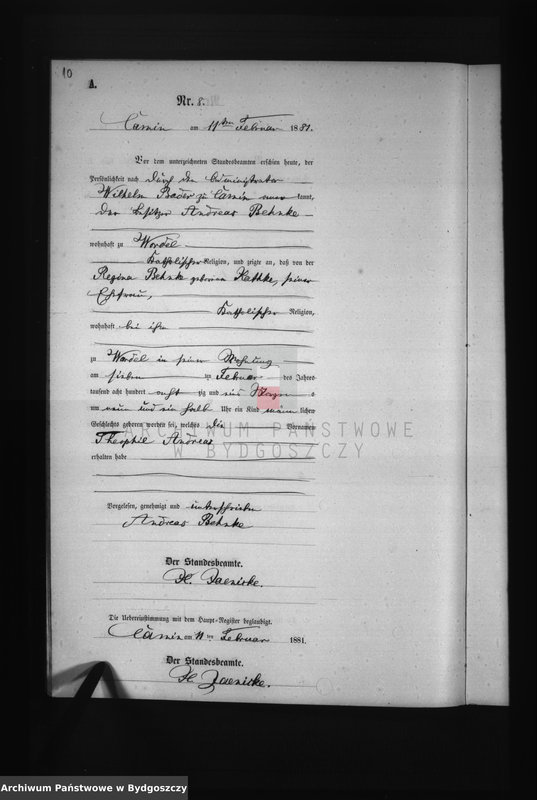 10
A.
Nr. 8.
Camin am 11ten Februar 1881.
Vor dem unterzeichneten Standesbeamten erschien heute, der
Persönlichkeit nach durch den Administrator
Wilhelm Bader zu Camin aner kannt,
der Besitzer Andreas Behnke
wohnhaft zu Wordel
katholischer Religion, und zeigte an, daß von der
Regina Behnke geborenen Rathke, seiner
Ehefrau,
katholischer Religion,
wohnhaft bei ihm
zu Wordel in seiner Wohnung
am sieben ten Februar des Jahres
tausend acht hundert acht zig und eins Morgens
um neun und ein halb Uhr ein Kind männ lichen
Geschlechts geboren worden sei, welches die Vornamen
Theophil Andreas
erhalten habe
Vorgelesen, genehmigt und unterschrieben
Andreas Behnke
Der Standesbeamte.
H. Jaenicke.
Die Uebereinstimmung mit dem Haupt-Register beglaubigt.
Camin am 11 ten Februar 1881.
Der Standesbeamte.
H. Jaenicke.
ARCHIWUM PAŃSTWOWE
W BYDGOSZCZY
Archiwum Państwowe w Bydgoszczy